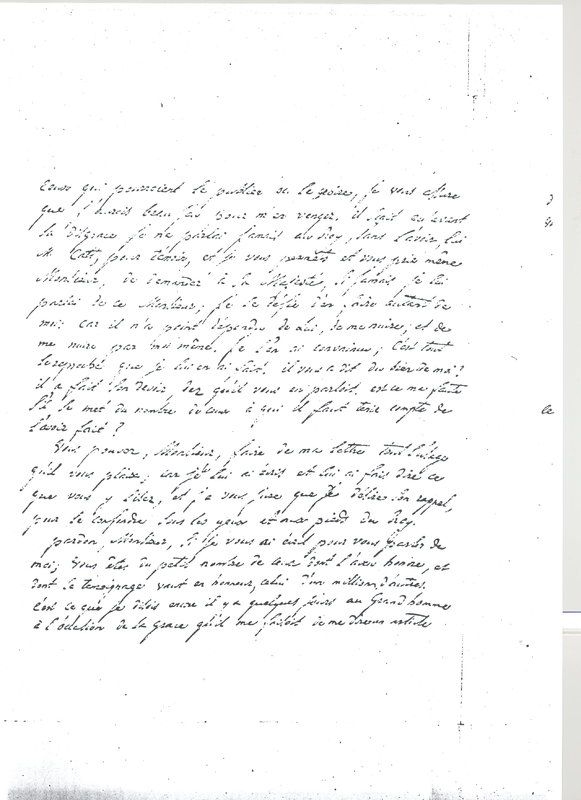 ceux qui pourroient le publier ou le croire, je vous assure
que j'aurois beau jeu pour m'en venger. il sait qu'avant
sa disgrace je ne parlai jamais au Roy, sans l'avoir, lui
M. Catt, pour témoin, et je vous permets et vous prie même
Monsieur, de demander à Sa Majesté, si jamais je lui
parlai de ce Monsieur; je le défie d'en dire autant de
moi; car il n'a point dépendu de lui, de me nuire; et de
me nuire par moi même. je l'en ai convaincu; c'est tout
le reproche que je lui en ai fait. il vous a dit du bien de moi?
il a fait son devoir dez qu'il vous en parloit. est ce ma faute
s'il se met du nombre de ceux à qui il faut tenir compte de
l'avoir fait?
Vous pouvez, Monsieur, faire de ma lettre tout l'usage
qu'il vous plaira; car je lui ai écris et lui ai fais dire ce
que vous y lisez, et je vous jure que je désire son rappel,
pour le confondre sous les yeux et aux pieds du Roy.
pardon, Monsieur, si je vous ai écrit pour vous parler de
moi; Vous êtes du petit nombre de ceux dont l'aveu honore, et
dont le temoignage vaut en honneur, celui d'un million d'autres.
c'est ce que je disois encore il y a quelques jours au Grand homme
à l'occasion de la grace qu'il me faisoit de me article